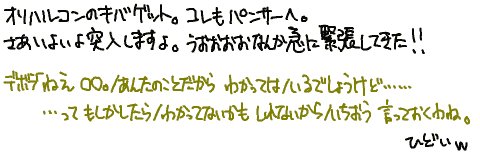 オリハルコンのキバゲット。コレもパンサーへ。
さあいよいよ突入しますよ。うおおおおなんか急に緊張してきた!!
デボラ「ねえ ○○。/あんたのことだから わかっては/いるでしょうけど……
…って もしかしたら/わかってないかも しれないから/いちおう 言っておくわね。
ひどいw